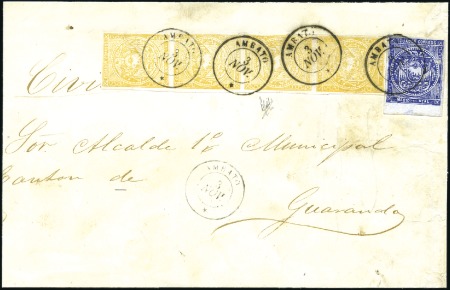 AMBATO
3
NOV
AMBATO
3
NOV
AMBATO
3
NOV
AMBATO
Civil
Sor Alcalde 1º Municipal
AMBATO
3
NOV
Canton de
Guaranda